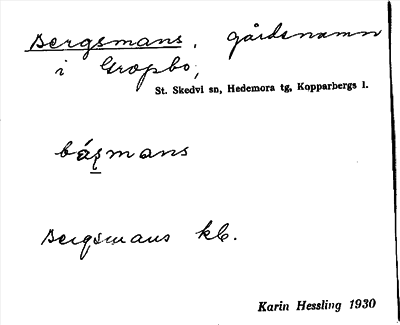 Bergsmans, gårdsnamn
i Gropbo,
St. Skedvi sn, Hedemora tg, Kopparbergs l.
básmans
Bergsmans kb.
Karin Hessling 1930